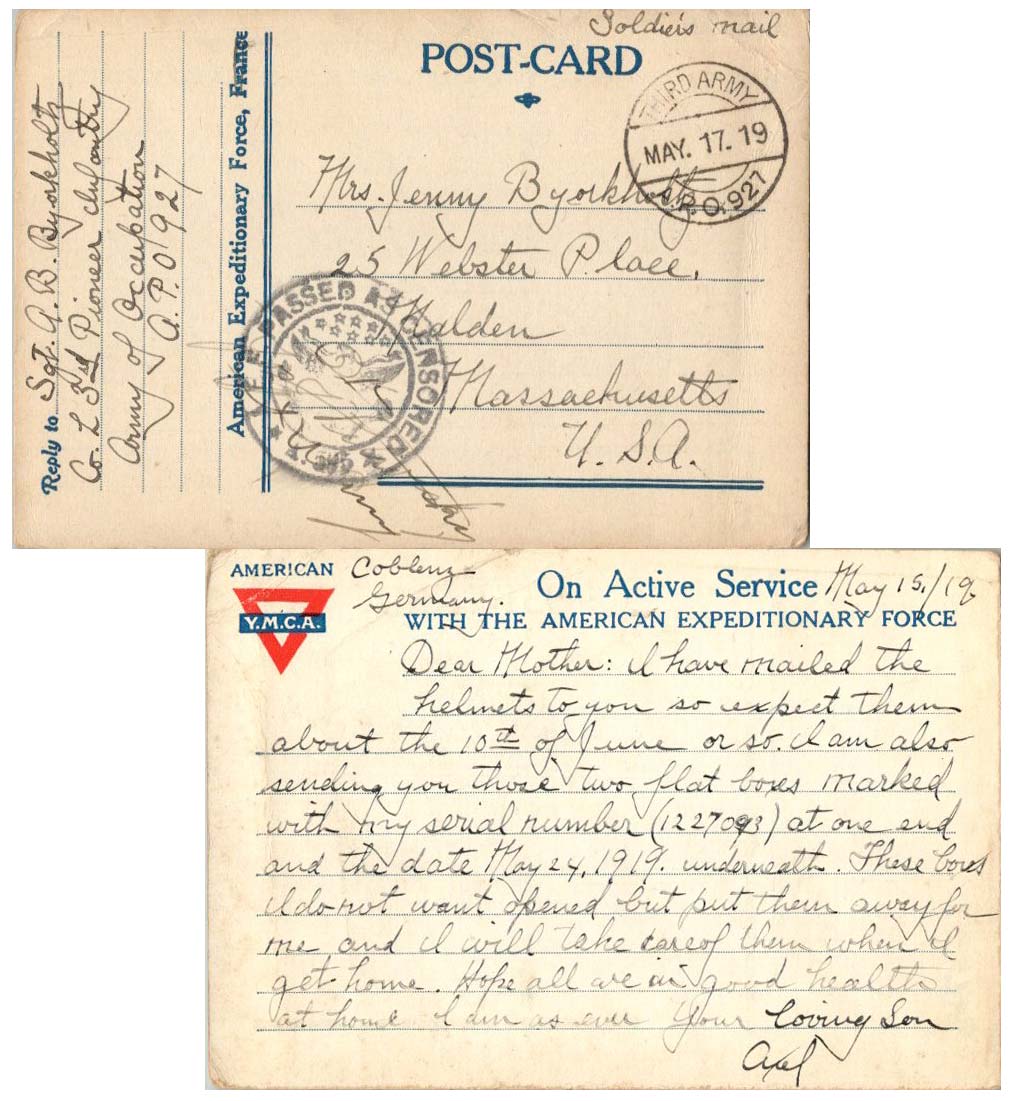 Soldier's mail
POST-CARD
THIRD ARMY
MAY. 17. 19
A.P.O. 927
Mrs. Jenny Byorkholtz
25 Webster Place,
Malden
Massachusetts
U.S.A.
Reply to Sgt. A. B. Byorkholtz
Co. L 3rd Pioneer Infantry
Army of Occupation
A.P.O 1927
American Expeditionary Force, France
A.E.F. PASSED AS CENSORED
AMERICAN
Y.M.C.A.
Coblenz
Germany.
On Active Service May 15,/19
WITH THE AMERICAN EXPEDITIONARY FORCE
Dear Mother: I have mailed the
helmets to you so expect them
about the 10th of June or so. I am also
sending you those two flat boxes marked
with my serial number (1227093) at one end
and the date May 24, 1919. underneath. These boxes
I do not want opened but put them away for
me and I will take care of them when I
get home. Hope all are in good health
at home I am as ever Your loving Son
Axel